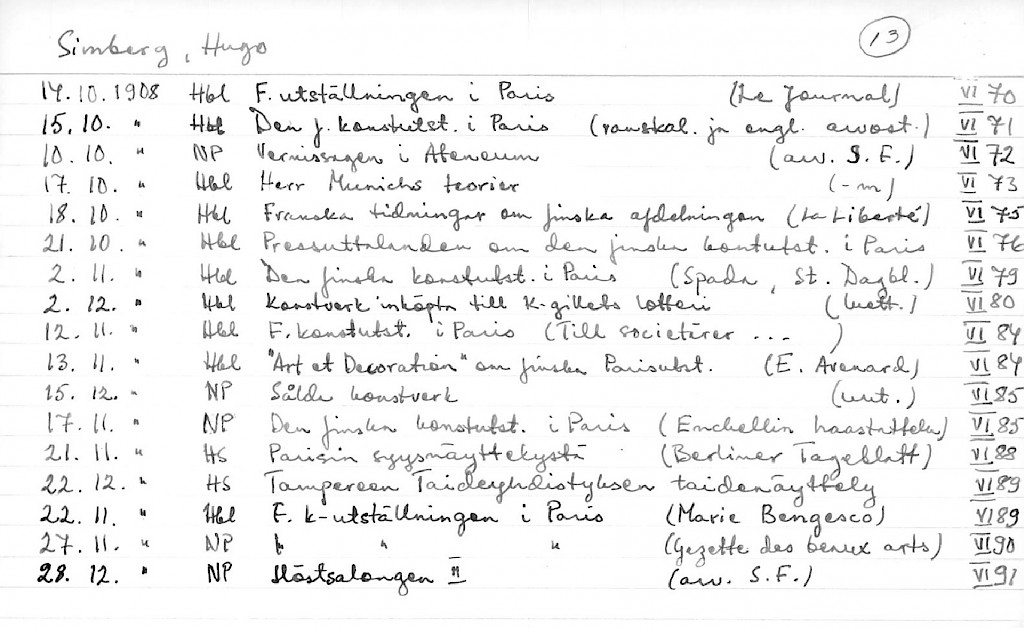 Simberg, Hugo
13
14.10.1908 Hbl F. utställningen i Paris (Le Journal) VI 70
15.10. " Hbl Den f. konstutst. i Paris (ranskal. ja engl. arvost.) VI 71
10.10. " NP Vernissagen i Ateneum (arv. S.F.) VI 72
17.10. " Hbl Herr Munichs teorier (-m) VI 73
18.10. " Hbl Franska tidningar om finska afdelningen (La Liberté) VI 75
21.10 " Hbl Pressuttalanden om den finska kontutst. i Paris VI 76
2.11. " Hbl Den finska konstutst. i Paris (Spada, St. Dagbl.) VI 79
2.12. " Hbl Konstverk inköpta till K-gillets lotteri VI 80
12.11. " Hbl F. konstutst. i Paris (Till societärer ... ) VI 84
13.11. " Hbl "Art et Decoration" om finska Parisutst. (E. Avenard) VI 84
15.12. " NP Sålda konstverk VI 85
17.11. " NP Den finska konstutst. i Paris (Enckellin haastattelu) VI 85
21.11. " HS Parisin syysnäyttelystä (Berliner Tageblatt) VI 88
22.12. " HS Tampereen Taideyhdistyksen taidenäyttely VI 89
22.11. " Hbl F. k-utställningen i Paris (Marie Bengesco) VI 89
27.11. " NP " " " (Gazette des beaux arts) VI 90
28.12. " NP Höstsalongen II (arv. S.F.) VI 91